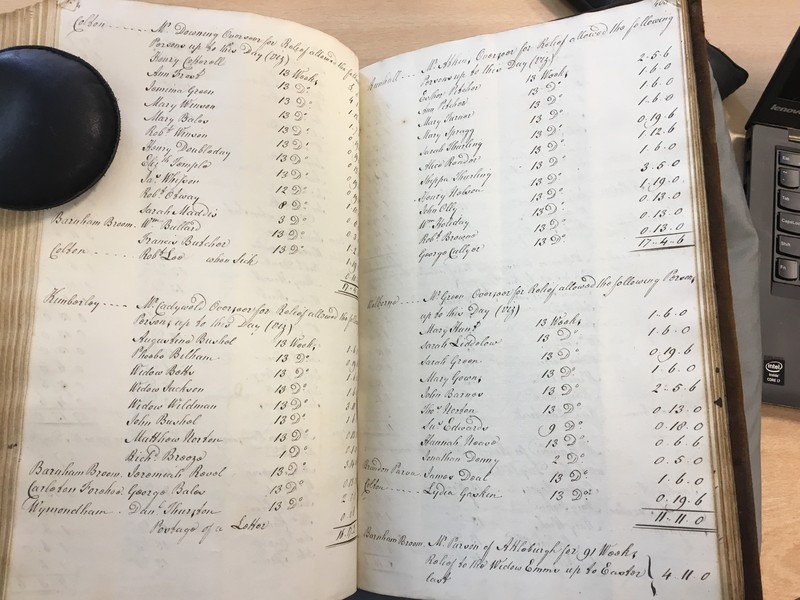 Colton Mr. Downing Overseer for Relief allowed the foll
Persons up to this Day (Vizt)
Henry Cotterell 13 Weeks
Ann Frost 13 Do.
Jemima Green 13 Do.
Mary Winson 13 Do.
Mary Bales 13 Do.
Robt. Winson 13 Do.
Henry Doubleday 13 Do.
Elizth. Temple 13 Do.
Jas. Whisson 13 Do.
Robt. Etway 12 Do.
Sarah Maddis 8 Do.
Barnham Broom Wm. Bullard 3 Do.
Francis Butcher 13 Do.
Colton Robt. Loo when Sick
Kimberley Mr. Cadywold Overseer for Relief allowed the foll
Persons up to this Day (Vizt)
Augustine Bushel 13 Weeks
Phoebe Bilham 13 Do.
Widow Betts 13 Do.
Widow Jackson 13 Do.
Widow Wildman 13 Do.
John Bushel 13 Do.
Matthew Norton 13 Do.
Richd. Breeze 1 Do.
Barnham Broom Jeremiah Revel 13 Do.
Carleton Forehoe George Bales 13 Do.
Wymondham Danl. Thurston 13 Do.
Postage of a Letter
Mr. Aitken, Overseer for Relief allowed the following
Persons up to this Day (Vizt)
Esther Pitcher 13 Weeks 2-5-6
Ann Pitcher 13 Do. 1-6-0
Mary Turner 13 Do. 1-6-0
Mary Spragg 13 Do. 1-6-0
Sarah Thurling 13 Do. 0-19-6
Alice Reeder 13 Do. 1-12-6
Thurling 13 Do. 1-6-0
Henry Hobson 13 Do. 3-5-0
John Olly 13 Do. 1-19-0
Wm. Holiday 13 Do. 0-13-0
Robt. Browne 13 Do. 0-13-0
George Cullyer 13 Do. 0-13-0
17-4-6
Mr. Green Overseer for Relief allowed the following Persons
up to this Day (Vizt)
Mary Hunt 13 Weeks 1-6-0
Sarah Liddelow 13 Do. 1-6-0
Sarah Green 13 Do. 0-19-6
Mary Gowen 13 Do. 1-6-0
John Barnes 13 Do. 2-5-6
Thos. Norton 13 Do. 0-13-0
Jas. Edwards 9 Do. 0-18-0
Hannah Neave 13 Do. 0-6-6
Jonathan Denny 2 Do. 0-5-0
Brandon Parva James Deal 13 Do. 1-6-0
Colton Lydia Gaskin 13 Do. 0-19-6
11-11-0
Barnham Broom Mr. Parson of Attleburgh for 91 Weeks
Relief to the Widow Emms up to Easter
last 4-11-0
lenovo
Esc
Tab
CapsLock
Shift
Fn
intel
inside
CORE i7